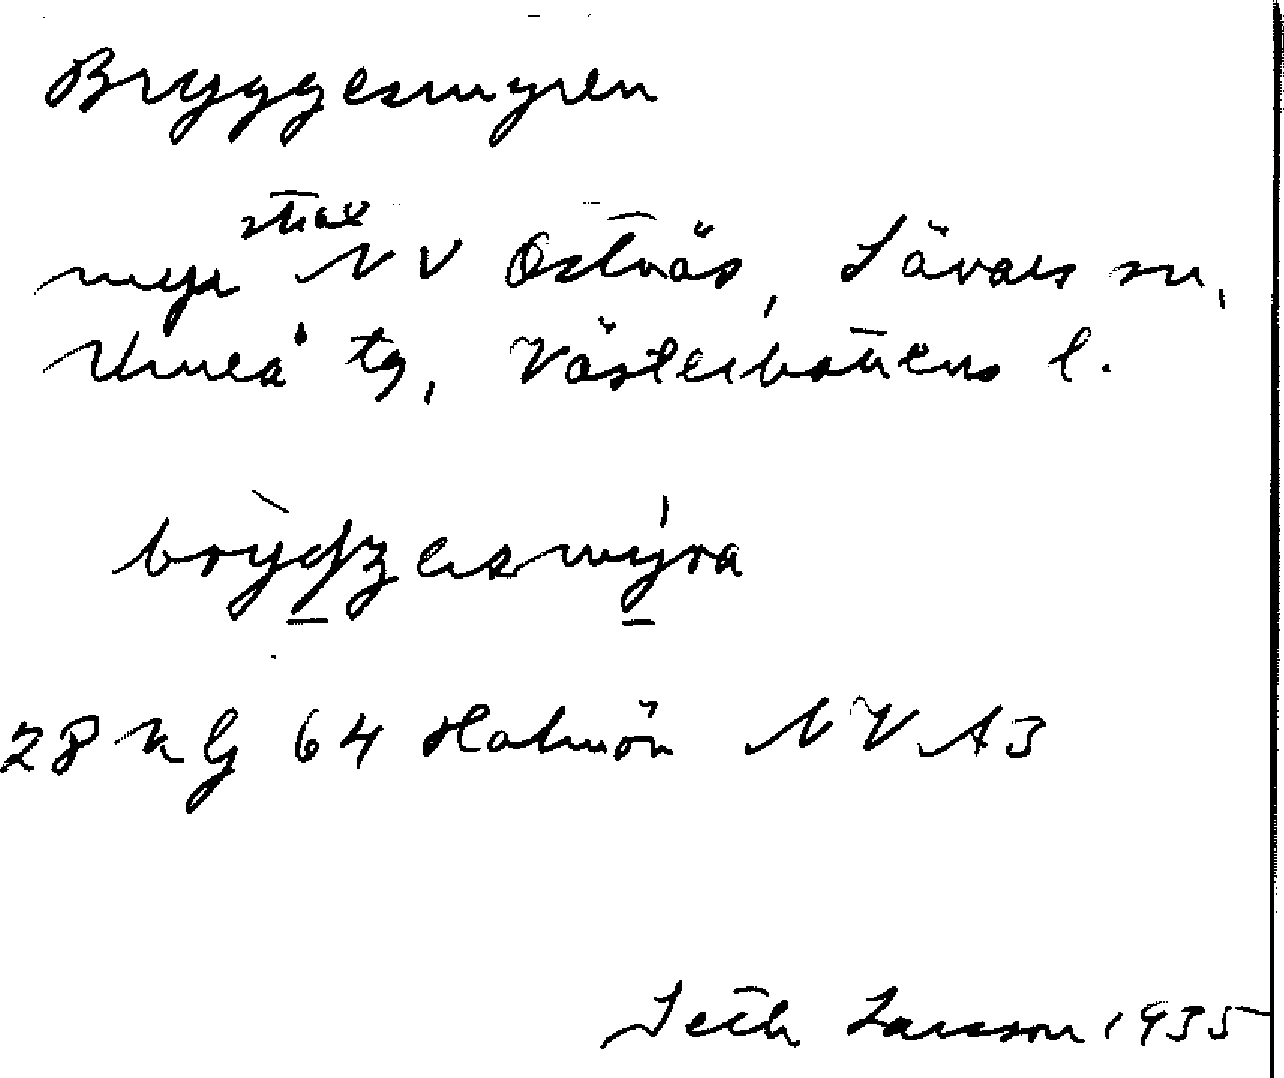 Bryggesmyren
myr strax NV Ostnäs, Sävars sn,
Umeå tg, Västerbottens l.
28 KG 64 Holmön NV A3
Seth Larsson 1935